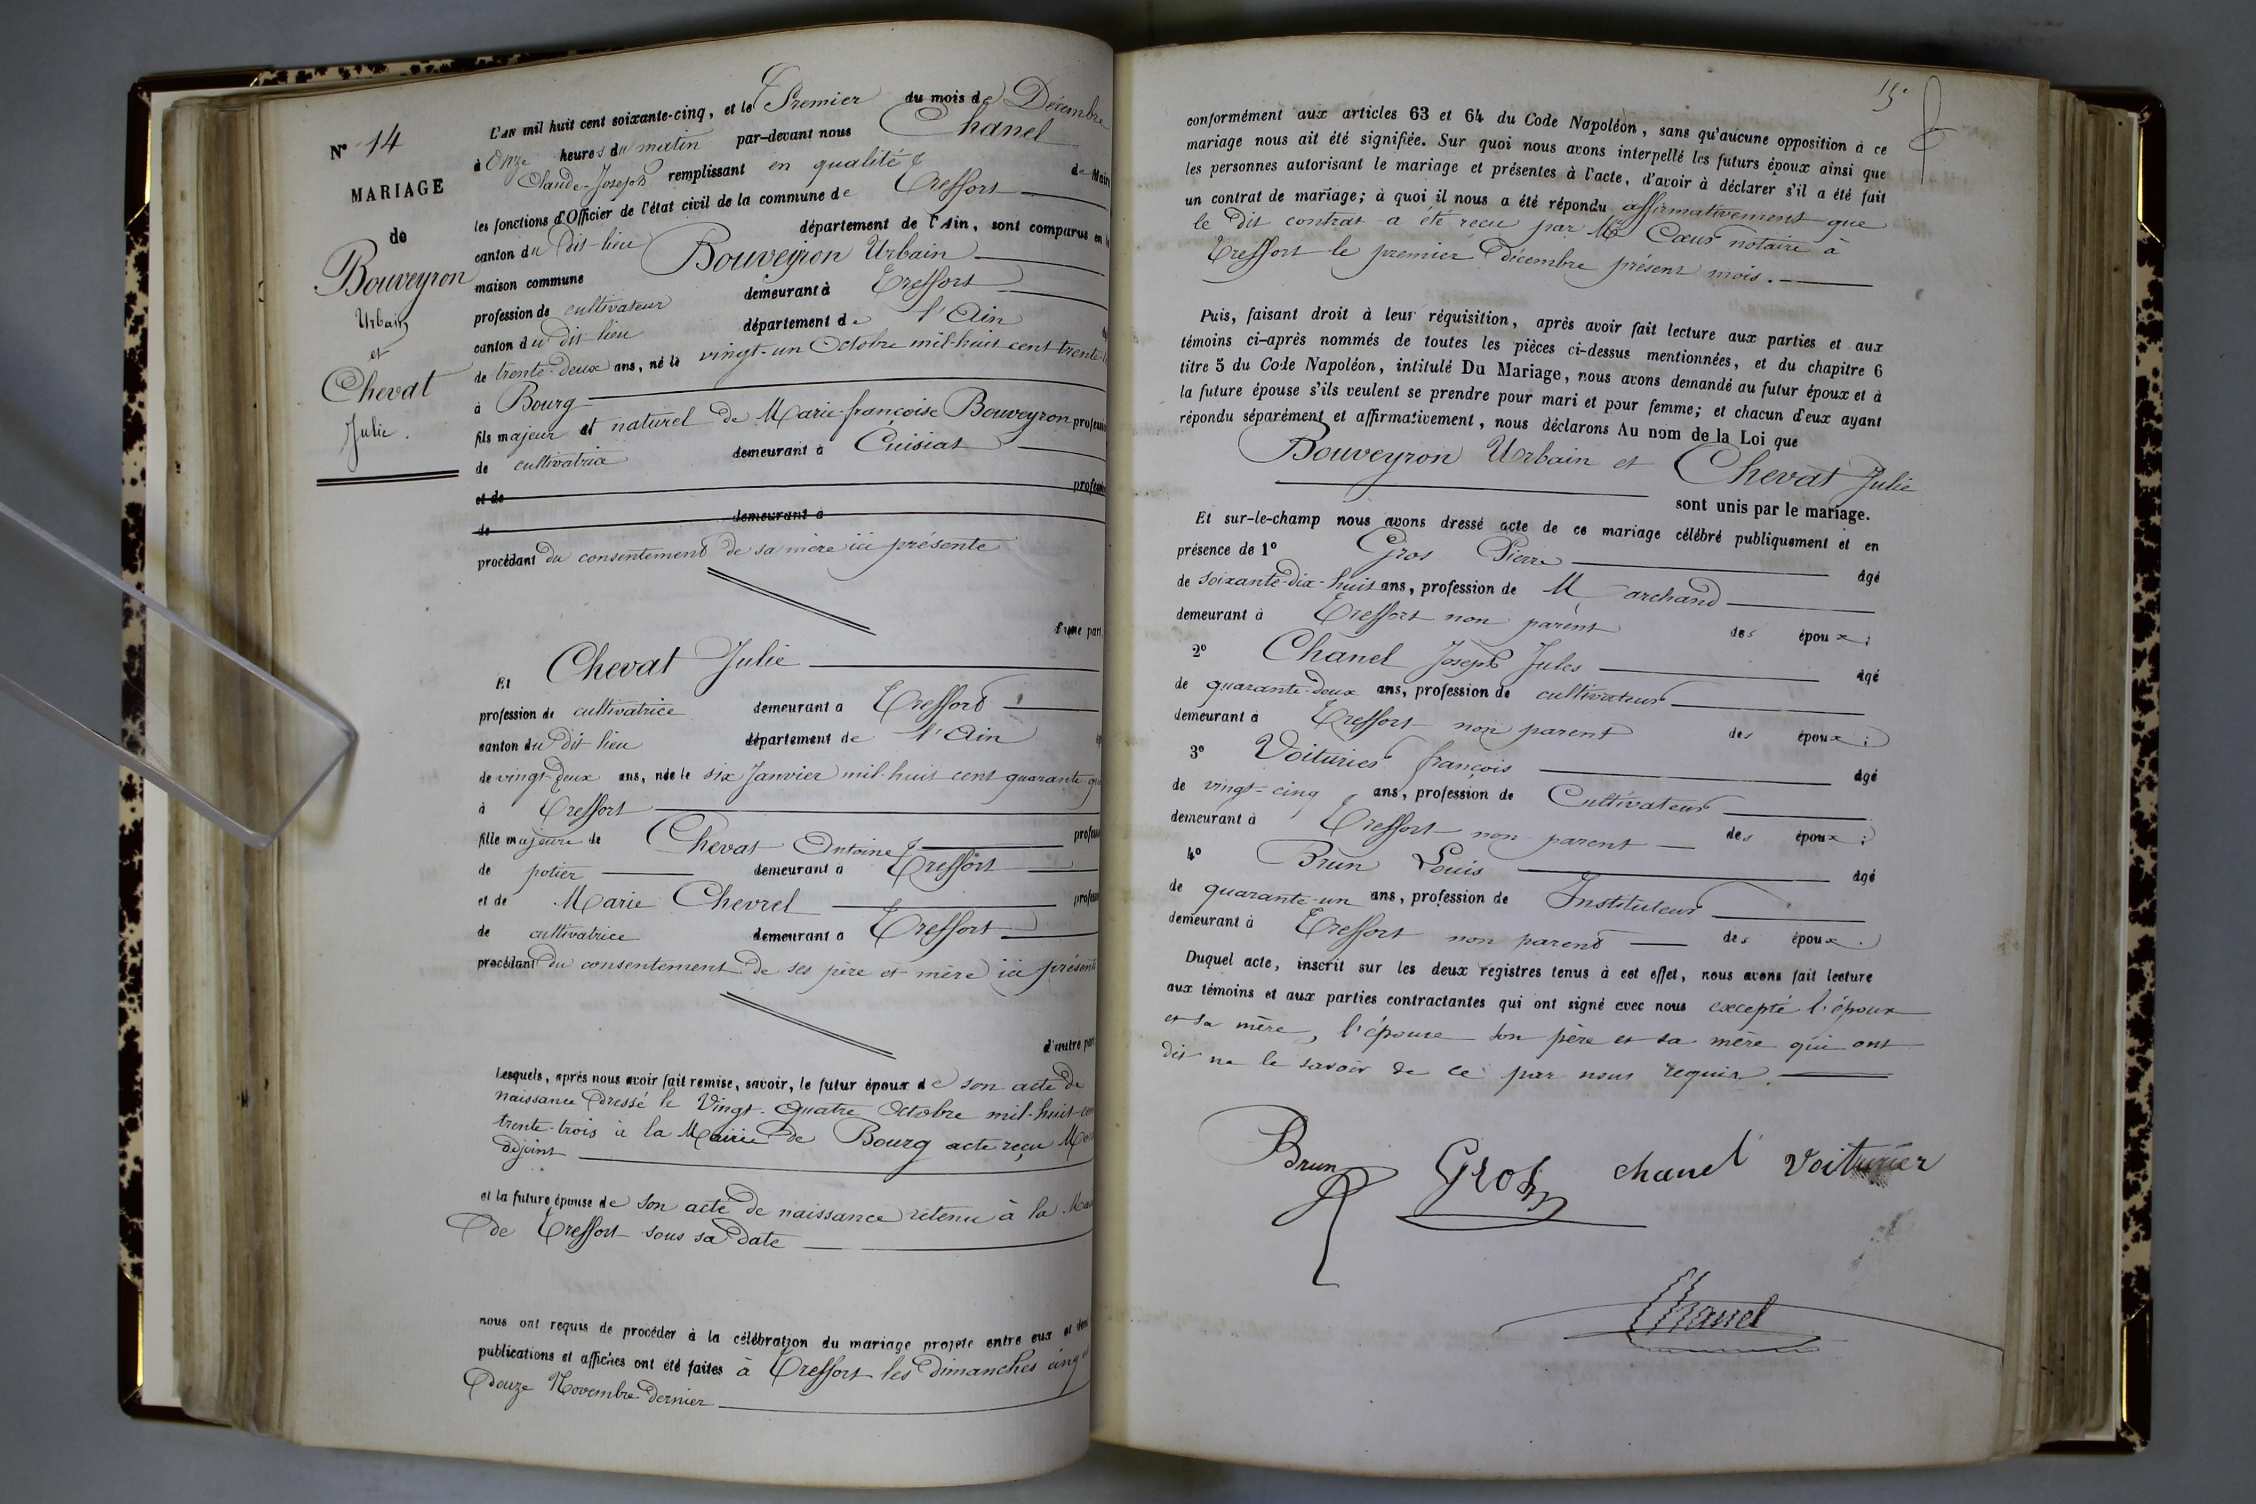 N° 14
MARIAGE
de
Bouveyron
Urbain
et
Chevat
Julie.
L'AN mil huit cent soixante-cinq, et le Premier du mois de Décembre
à Onze heures du matin par-devant nous Chanel
Claude-Joseph remplissant en qualité de Maire
les fonctions d'Officier de l'état civil de la commune de Treffort
canton du dit lieu département de l'Ain, sont comparus en la
maison commune Bouveyron Urbain
profession de cultivateur demeurant à Treffort
canton du dit lieu département de l'Ain
de trente-deux ans, né le vingt-un Octobre mil-huit cent trente
à Bourg
fils majeur et naturel de Marie françoise Bouveyron profession
de cultivatrice demeurant à Cuisiat
et de profession
de demeurant à
procédant du consentement de sa mère ici présente
d'une part
Et Chevat Julie
profession de cultivatrice demeurant à Treffort
canton du dit lieu département de l'Ain
de vingt-deux ans, née le six Janvier mil-huit cent quarante
à Treffort
fille majeure de Chevat Antoine profession
de potier demeurant à Treffort
et de Marie Chevrel profession
de cultivatrice demeurant à Treffort
procédant du consentement de ses père et mère ici présents
d'autre part
Lesquels, après nous avoir fait remise, savoir, le futur époux de son acte de
naissance dressé le Vingt-Quatre Octobre mil-huit-cent
trente-trois à la Mairie de Bourg acte reçu
adjoint
et la future épouse de son acte de naissance retenu à la Mairie
de Treffort sous sa date
nous ont requis de procéder à la célébration du mariage projeté entre eux et dont
publications et affiches ont été faites à Treffort les dimanches cinq et
douze Novembre dernier
15.
conformément aux articles 63 et 64 du Code Napoléon, sans qu'aucune opposition à ce
mariage nous ait été signifiée. Sur quoi nous avons interpellé les futurs époux ainsi que
les personnes autorisant le mariage et présentes à l'acte, d'avoir à déclarer s'il a été fait
un contrat de mariage; à quoi il nous a été répondu affirmativement que
le dit contrat a été reçu par Me Cœur notaire à
Treffort le premier décembre présent mois.
Puis, faisant droit à leur réquisition, après avoir fait lecture aux parties et aux
témoins ci-après nommés de toutes les pièces ci-dessus mentionnées, et du chapitre 6
titre 5 du Code Napoléon, intitulé Du Mariage, nous avons demandé au futur époux et à
la future épouse s'ils veulent se prendre pour mari et pour femme; et chacun d'eux ayant
répondu séparément et affirmativement, nous déclarons Au nom de la Loi que
Bouveyron Urbain et Chevat Julie
sont unis par le mariage.
Et sur-le-champ nous avons dressé acte de ce mariage célébré publiquement et en
présence de 1° Gros Pierre âgé
de soixante-dix-huit ans, profession de Marchand
demeurant à Treffort non parent des époux;
2° Chanel Joseph Jules âgé
de quarante-deux ans, profession de cultivateur
demeurant à Treffort non parent des époux;
3° Voiturier françois âgé
de vingt-cinq ans, profession de Cultivateur
demeurant à Treffort non parent des époux;
4° Brun Louis âgé
de quarante-un ans, profession de Instituteur
demeurant à Treffort non parent des époux.
Duquel acte, inscrit sur les deux registres tenus à cet effet, nous avons fait lecture
aux témoins et aux parties contractantes qui ont signé avec nous excepté l'époux
et sa mère, l'épouse son père et sa mère qui ont
dit ne le savoir de ce par nous requis.
Brun Gros chanel Voiturier
Chanel